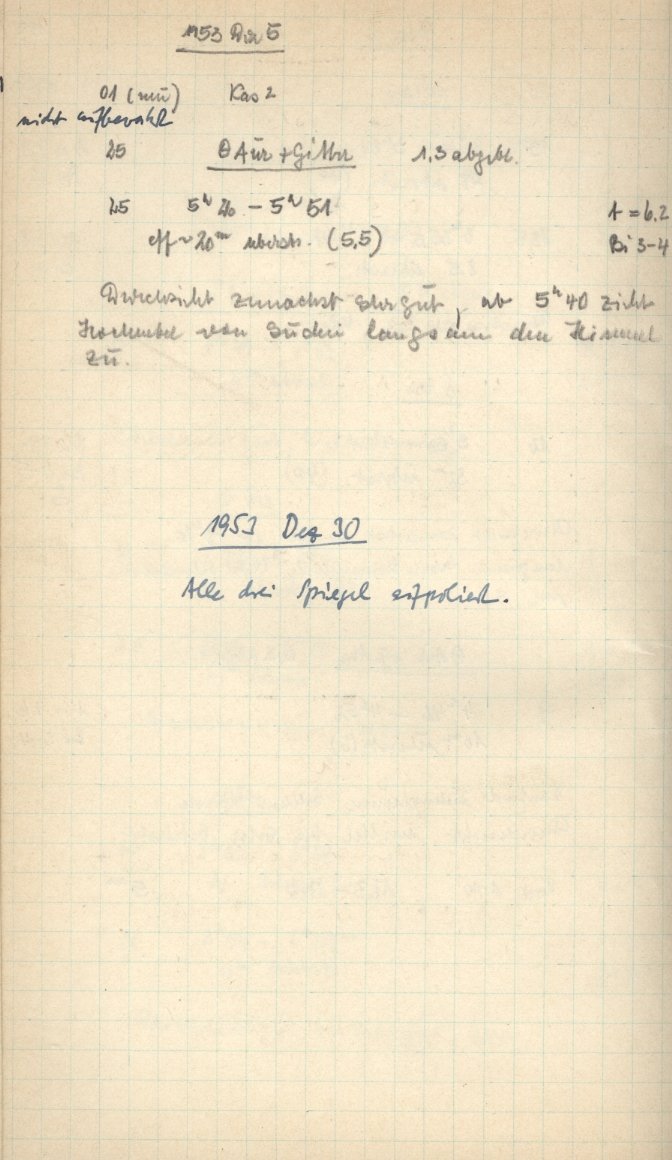 1953 Dez 5
01 (neu) Kas 2
nicht aufbewahrt
25 θ Aur + Gitter 1,3 abgebl.
25 5h 20 – 5h 51 t = 6.2
eff ~ 20m (5,5) Bi 3–4
Durchsicht zunächst sehr gut, ab 5h 40 zieht
Hochnebel von Süden langsam den Himmel
zu.
1953 Dez 30
Alle drei Spiegel aufpoliert.